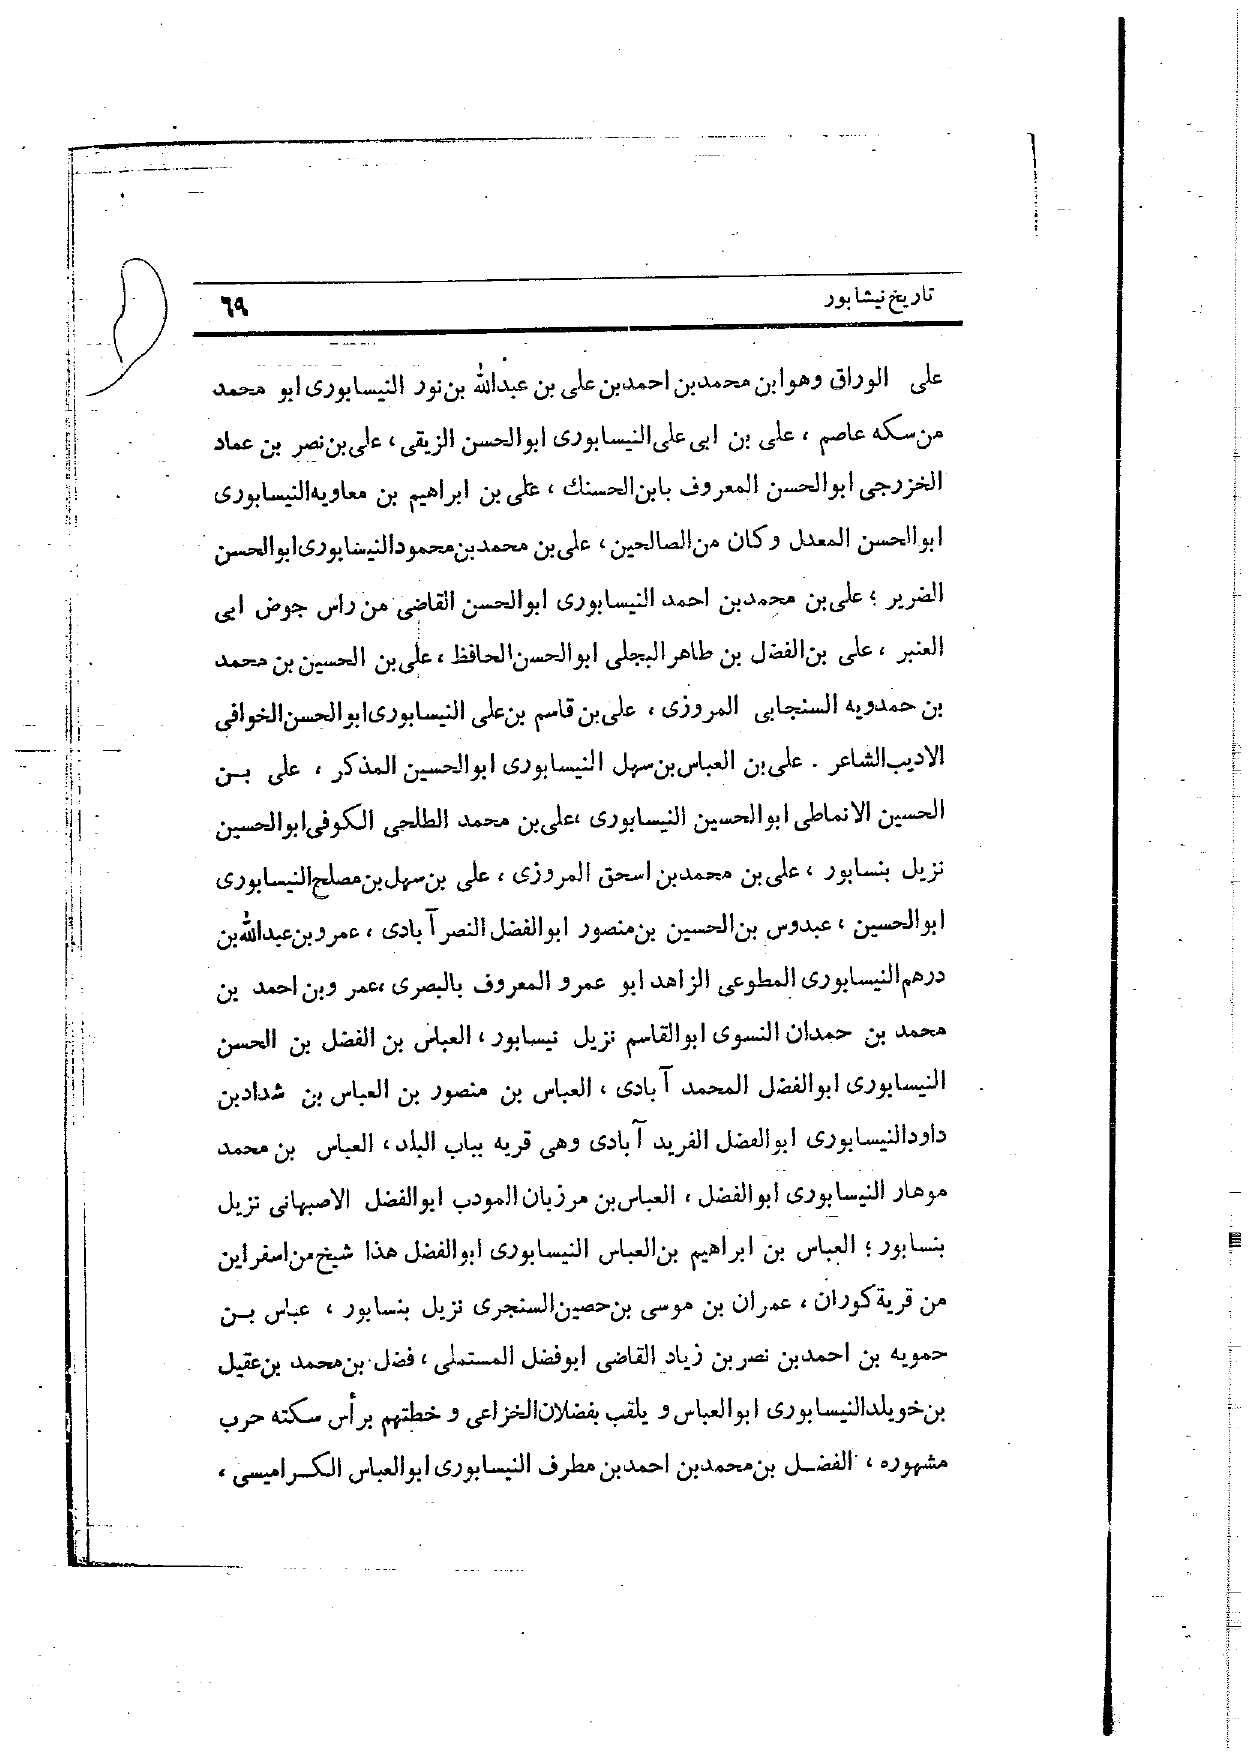 تاریخ نیشابور
٦٩
علی الوراق وهوابن محمدبن احمدبن علی بن عبدالله بن نور النیسابوری ابو محمد
من سکه عاصم ، علی بن ابی علی النیسابوری ابوالحسن الزیقی ، علی بن نصر بن عماد
الخزرجی ابوالحسن المعروف بابن الحسنك ، علی بن ابراهیم بن معاویه النیسابوری
ابوالحسن المعدل وکان من الصالحین ، علی بن محمدبن محمودالنیشابوری ابوالحسن
الضریر ؛ علی بن محمدبن احمد النیسابوری ابوالحسن القاضی من راس جوض ابی
العنبر ، علی بن الفضل بن طاهرالبجلی ابوالحسن الحافظ ، علی بن الحسین بن محمد
بن حمدویه السنجابی المروزی ، علی بن قاسم بن علی النیسابوری ابوالحسن الخوافی
الادیب الشاعر . علی بن العباس بن سهل النیسابوری ابوالحسین المذکر ، علی بـن
الحسین الانماطی ابوالحسین النیسابوری ،علی بن محمد الطلحی الکوفی ابوالحسین
نزیل بنسابور ، علی بن محمدبن اسحق المروزی ، علی بن سهل بن مصلح النیسابوری
ابوالحسین ، عبدوس بن الحسین بن منصور ابوالفضل النصرآبادی ، عمروبن عبدالله بن
درهم النیسابوری المطوعی الزاهد ابو عمرو المعروف بالبصری ،عمر وبن احمد بن
محمد بن حمدان النسوی ابوالقاسم نزیل نیسابور ، العباس بن الفضل بن الحسن
النیسابوری ابوالفضل المحمد آبادی ، العباس بن منصور بن العباس بن شدادبن
داودالنیسابوری ابوالفضل الفرید آبادی وهی قریه بباب البلد ، العباس بن محمد
موهار النیسابوری ابوالفضل ، العباس بن مرزبان المودب ابوالفضل الاصبهانی نزیل
بنسابور ؛ العباس بن ابراهیم بن العباس النیسابوری ابوالفضل هذا شیخ من اسفراین
من قریة کوران ، عمران بن موسی بن حصین السنجری نزیل بنسابور ، عباس بـن
حمویه بن احمدبن نصربن زیاد القاضی ابوفضل المستملی ، فضل بن محمد بن عقیل
بن خویلدالنیسابوری ابوالعباس و یلقب بفضلان الخزاعی و خطتهم برأس سکته حرب
مشهوره ، الفضـل بن محمدبن احمدبن مطرف النیسابوری ابوالعباس الکـرامیسی ،